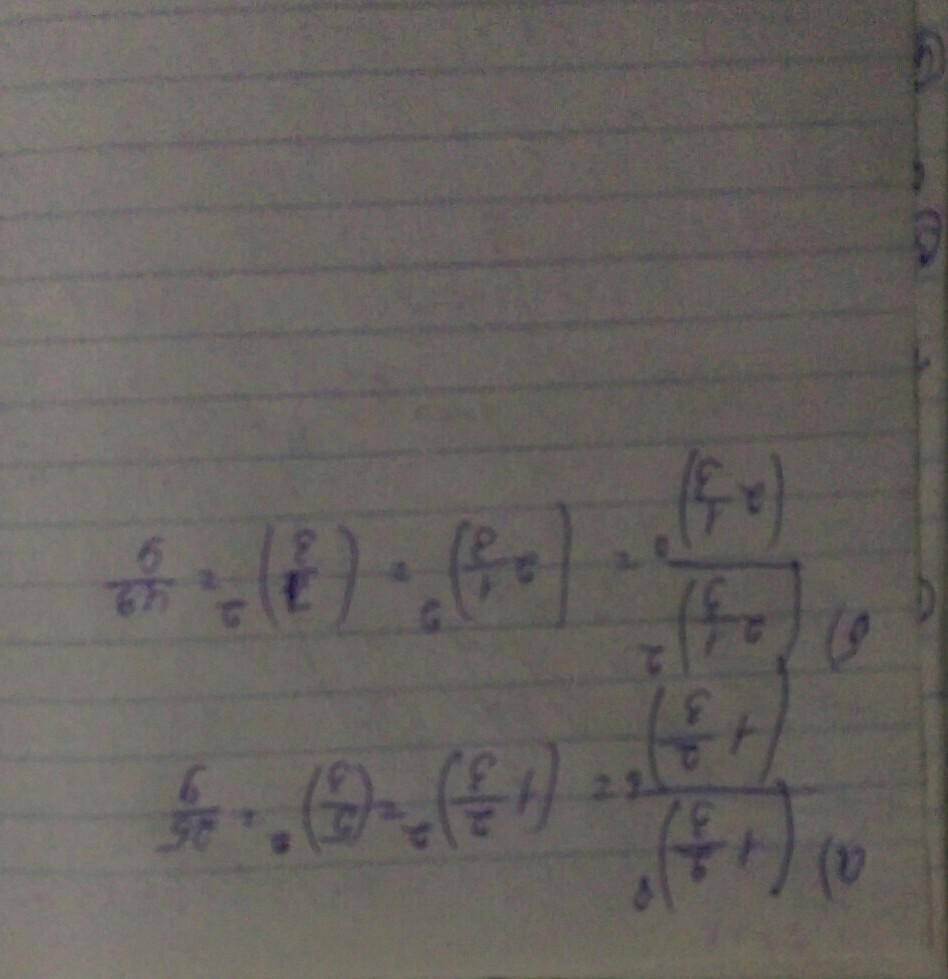 а) (1 2/3)⁸ / (1 2/3)⁶ = (1 2/3)² = (5/3)² = 25/9
б) (2 1/3)² / (2 1/3)⁰ = (2 1/3)² = (7/3)² = 49/9